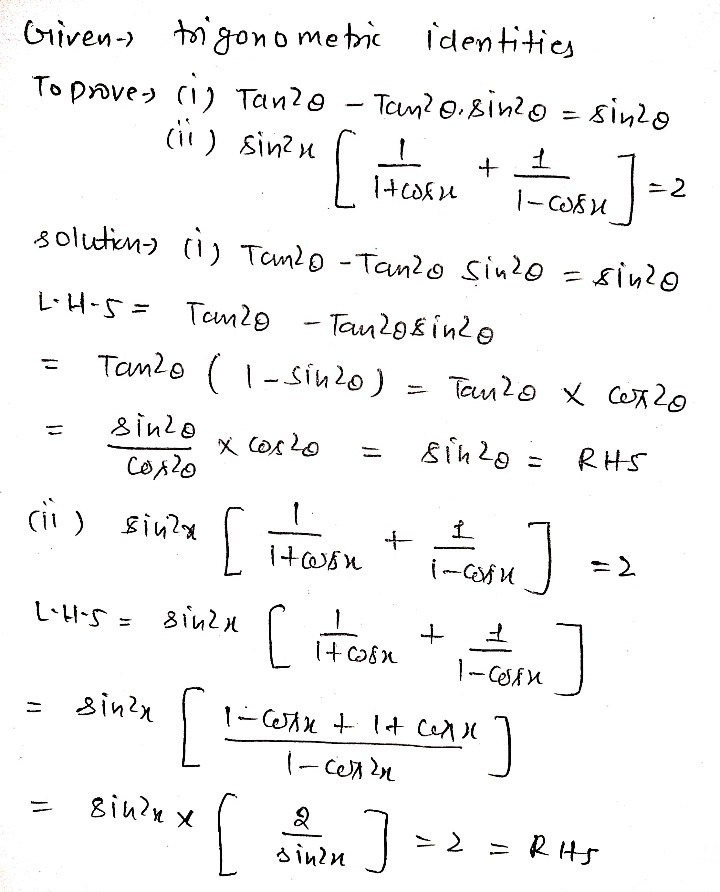 Given→ trigonometric identities
To prove→ (i) Tan²θ – Tan²θ.sin²θ = sin²θ
(ii) sin²x [ 1/(1+cosx) + 1/(1-cosx) ] = 2
solution→ (i) Tan²θ - Tan²θ sin²θ = sin²θ
L.H.S = Tan²θ - Tan²θ sin²θ
= Tan²θ ( 1 - sin²θ ) = Tan²θ × cos²θ
= sin²θ/cos²θ × cos²θ = sin²θ = RHS
(ii) sin²x [ 1/(1+cosx) + 1/(1-cosx) ] = 2
L.H.S = sin²x [ 1/(1+cosx) + 1/(1-cosx) ]
= sin²x [ (1-cosx + 1+cosx)/(1-cos²x) ]
= sin²x × [ 2/sin²x ] = 2 = RHS